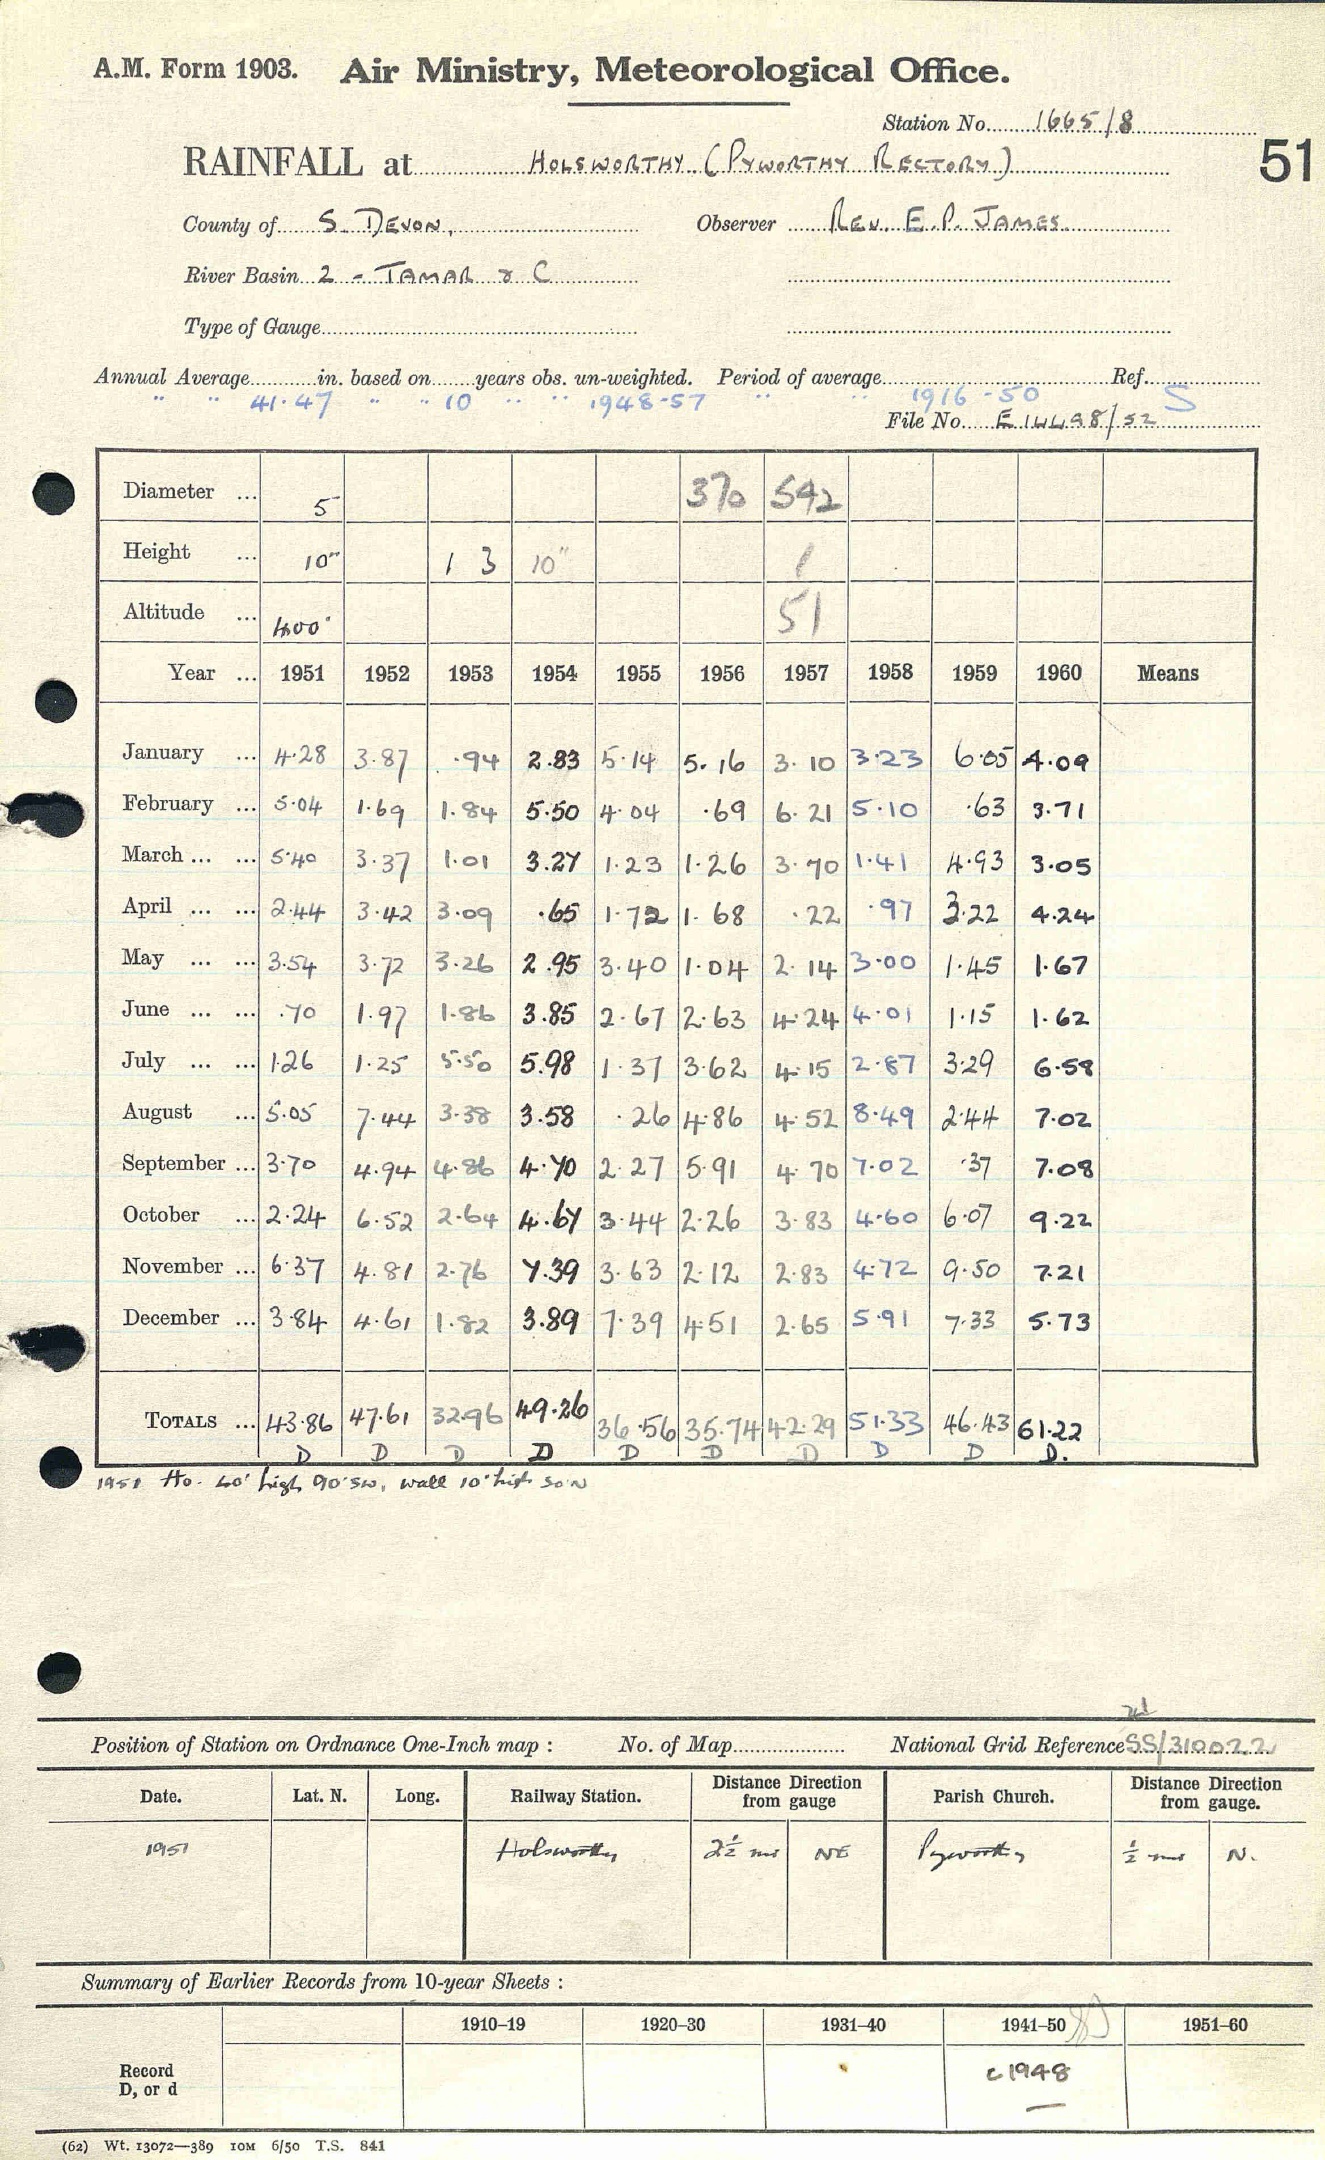 A.M. Form 1903. Air Ministry, Meteorological Office.
Station No. 1665/8
RAINFALL at HOLSWORTHY (PYWORTHY RECTORY)
51
County of S. DEVON, Observer REV. E.P. JAMES.
River Basin 2 - TAMAR & C
Type of Gauge
Annual Average in. based on years obs. un-weighted. Period of average Ref.
" " 41.47 " " 10 " " 1948-57 " " 1916-50 S
File No. E 14498/52
Diameter ... 5 370 542
Height ... 10" 1 3 10" 1
Altitude ... 400' 51
Year ... 1951 1952 1953 1954 1955 1956 1957 1958 1959 1960 Means
January ... 4.28 3.87 .94 2.83 5.14 5.16 3.10 3.23 6.05 4.09
February ... 5.04 1.69 1.84 5.50 4.04 .69 6.21 5.10 .63 3.71
March ... ... 5.40 3.37 1.01 3.27 1.23 1.26 3.70 1.41 4.93 3.05
April ... ... 2.44 3.42 3.09 .65 1.72 1.68 .22 .97 3.22 4.24
May ... ... 3.54 3.72 3.26 2.95 3.40 1.04 2.14 3.00 1.45 1.67
June ... ... .70 1.97 1.86 3.85 2.67 2.63 4.24 4.01 1.15 1.62
July ... ... 1.26 1.25 5.50 5.98 1.37 3.62 4.15 2.87 3.29 6.58
August ... 5.05 7.44 3.38 3.58 .26 4.86 4.52 8.49 2.44 7.02
September ... 3.70 4.94 4.86 4.70 2.27 5.91 4.70 7.02 .37 7.08
October ... 2.24 6.52 2.64 4.67 3.44 2.26 3.83 4.60 6.07 9.22
November ... 6.37 4.81 2.76 7.39 3.63 2.12 2.83 4.72 9.50 7.21
December ... 3.84 4.61 1.82 3.89 7.39 4.51 2.65 5.91 7.33 5.73
TOTALS ... 43.86 47.61 32.96 49.26 36.56 35.74 42.29 51.33 46.43 61.22
D D D D D D D D D D.
1951 Ho. 40' high 90' SW, wall 10' high 50' N
Position of Station on Ordnance One-Inch map : No. of Map National Grid Reference SS/310022
Date. Lat. N. Long. Railway Station. Distance Direction from gauge Parish Church. Distance Direction from gauge.
1951 Holsworthy 2½ mls NE Pyworthy ½ mls N.
Summary of Earlier Records from 10-year Sheets :
1910-19 1920-30 1931-40 1941-50 1951-60
Record
D, or d
c 1948
(62) Wt. 13072—389 10M 6/50 T.S. 841